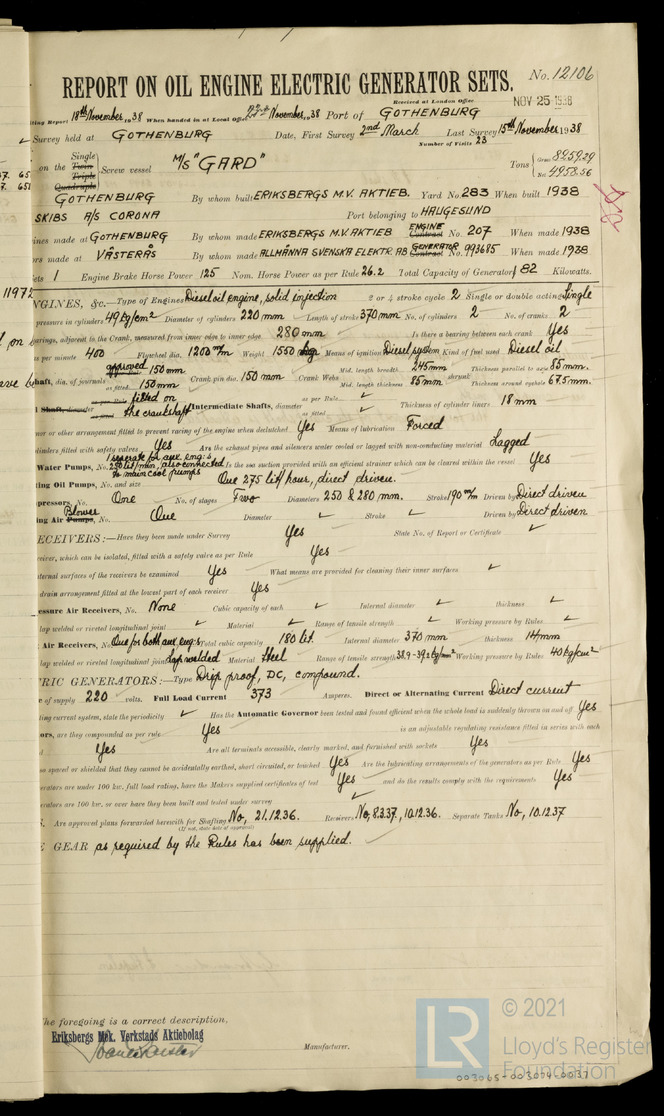 No. 12106
REPORT ON OIL ENGINE ELECTRIC GENERATOR SETS.
Received at London Office
NOV 25 1938
ting Report 18th November, 1938 When handed in at Local Office 22nd November, 38 Port of GOTHENBURG
Survey held at GOTHENBURG Date, First Survey 2nd March Last Survey 15th November 1938
Number of Visits 23
on the Single Twin Triple Quadruple Screw vessel M/S "GARD" Tons Gross 8259.29 Net 4958.56
GOTHENBURG By whom built ERIKSBERGS M.V. AKTIEB. Yard No. 283 When built 1938
SKIBS A/S CORONA Port belonging to HAUGESUND
ines made at GOTHENBURG By whom made ERIKSBERGS M.V. AKTIEB ENGINE Contract No. 207 When made 1938
ors made at VÄSTERÅS By whom made ALLMÄNNA SVENSKA ELEKTR. AB GENERATOR Contract No. 993685 When made 1938
Sets 1 Engine Brake Horse Power 125 Nom. Horse Power as per Rule 26.2 Total Capacity of Generators 82 Kilowatts.
11972
NGINES, &c.—Type of Engines Diesel oil engine, solid injection 2 or 4 stroke cycle 2 Single or double acting Single
pressure in cylinders 49 kg/cm² Diameter of cylinders 220 mm Length of stroke 370 mm No. of cylinders 2 No. of cranks 2
earings, adjacent to the Crank, measured from inner edge to inner edge 280 mm Is there a bearing between each crank Yes
s per minute 400 Flywheel dia. 1200 m/m Weight 1550 kg Means of ignition Diesel system Kind of fuel used Diesel oil
haft, dia. of journals approved 150 mm as fitted 150 mm Crank pin dia. 150 mm Crank Webs Mid. length breadth 245 mm Mid. length thickness 85 mm shrunk Thickness parallel to axis 85 mm. Thickness around eyehole 67.5 mm.
Shaft, diameter as per Rule fitted on as fitted the crankshaft Intermediate Shafts, diameter as per Rule ✓ as fitted ✓ Thickness of cylinder liners 18 mm
nor or other arrangement fitted to prevent racing of the engine when declutched Yes Means of lubrication Forced
linders fitted with safety valves Yes Are the exhaust pipes and silencers water cooled or lagged with non-conducting material Lagged
Water Pumps, No. 1 seperate for aux. eng:s 250 lit/min, also connected to main cool pumps Is the sea suction provided with an efficient strainer which can be cleared within the vessel Yes
ing Oil Pumps, No. and size One 275 lit/hour, direct driven.
pressors, No. One No. of stages Two Diameters 250 & 280 mm. Stroke 190 m/m Driven by Direct driven
ing Air Pumps, Blower No. One Diameter ✓ Stroke ✓ Driven by Direct driven
ECEIVERS:—Have they been made under Survey Yes State No. of Report or Certificate ✓
ceiver, which can be isolated, fitted with a safety valve as per Rule Yes
ternal surfaces of the receivers be examined Yes What means are provided for cleaning their inner surfaces ✓
drain arrangement fitted at the lowest part of each receiver Yes
essure Air Receivers, No. None Cubic capacity of each ✓ Internal diameter ✓ thickness ✓
lap welded or riveted longitudinal joint ✓ Material ✓ Range of tensile strength ✓ Working pressure by Rules ✓
Air Receivers, No. One for both aux. eng:s Total cubic capacity 180 lit. Internal diameter 370 mm thickness 14 mm
lap welded or riveted longitudinal joint Lap welded Material Steel Range of tensile strength 38.9-39.2 kg/mm² Working pressure by Rules 40 kg/cm²
RIC GENERATORS:—Type Drip proof, DC, compound.
e of supply 220 volts. Full Load Current 373 Amperes. Direct or Alternating Current Direct current
ting current system, state the periodicity ✓ Has the Automatic Governor been tested and found efficient when the whole load is suddenly thrown on and off Yes
ors, are they compounded as per rule Yes is an adjustable regulating resistance fitted in series with each
d Yes Are all terminals accessible, clearly marked, and furnished with sockets Yes
so spaced or shielded that they cannot be accidentally earthed, short circuited, or touched Yes Are the lubricating arrangements of the generators as per Rule Yes
erators are under 100 kw. full load rating, have the Makers supplied certificates of test Yes and do the results comply with the requirements Yes
erators are 100 kw. or over have they been built and tested under survey ✓
S. Are approved plans forwarded herewith for Shafting No, 21.12.36. Receivers No, 8.3.37., 10.12.36. Separate Tanks No, 10.12.37
(If not, state date of approval)
E GEAR as required by the Rules has been supplied.
The foregoing is a correct description,
Eriksbergs Mek. Verkstads Aktiebolag
Manufacturer.
LR
© 2021
Lloyd's Register
Foundation
003065-003074-0037